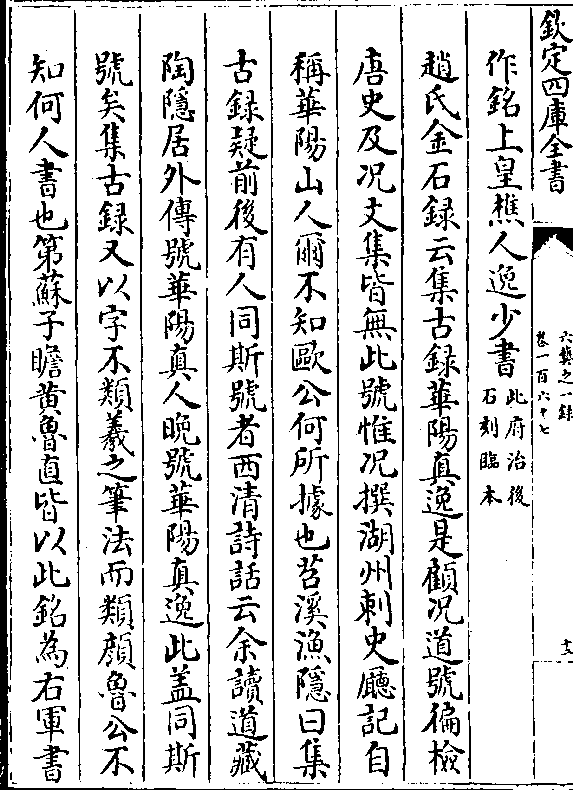 欽定四庫全書
六藝之一錄
卷一百六十七
十六
作銘上皇樵人逸少書此府治後石刻臨本
趙氏金石録云集古録華陽真逸是顧况道號徧檢
唐史及况文集皆無此號惟况撰湖州刺史廳記自
稱華陽山人爾不知歐公何所據也苕溪漁隱曰集
古録疑前後有人同斯號者西清詩話云余讀道藏
陶隱居外傳號華陽真人晚號華陽真逸此葢同斯
號矣集古録又以字不類羲之筆法而類顔魯公不
知何人書也第蘇子瞻黄魯直皆以此銘為右軍書